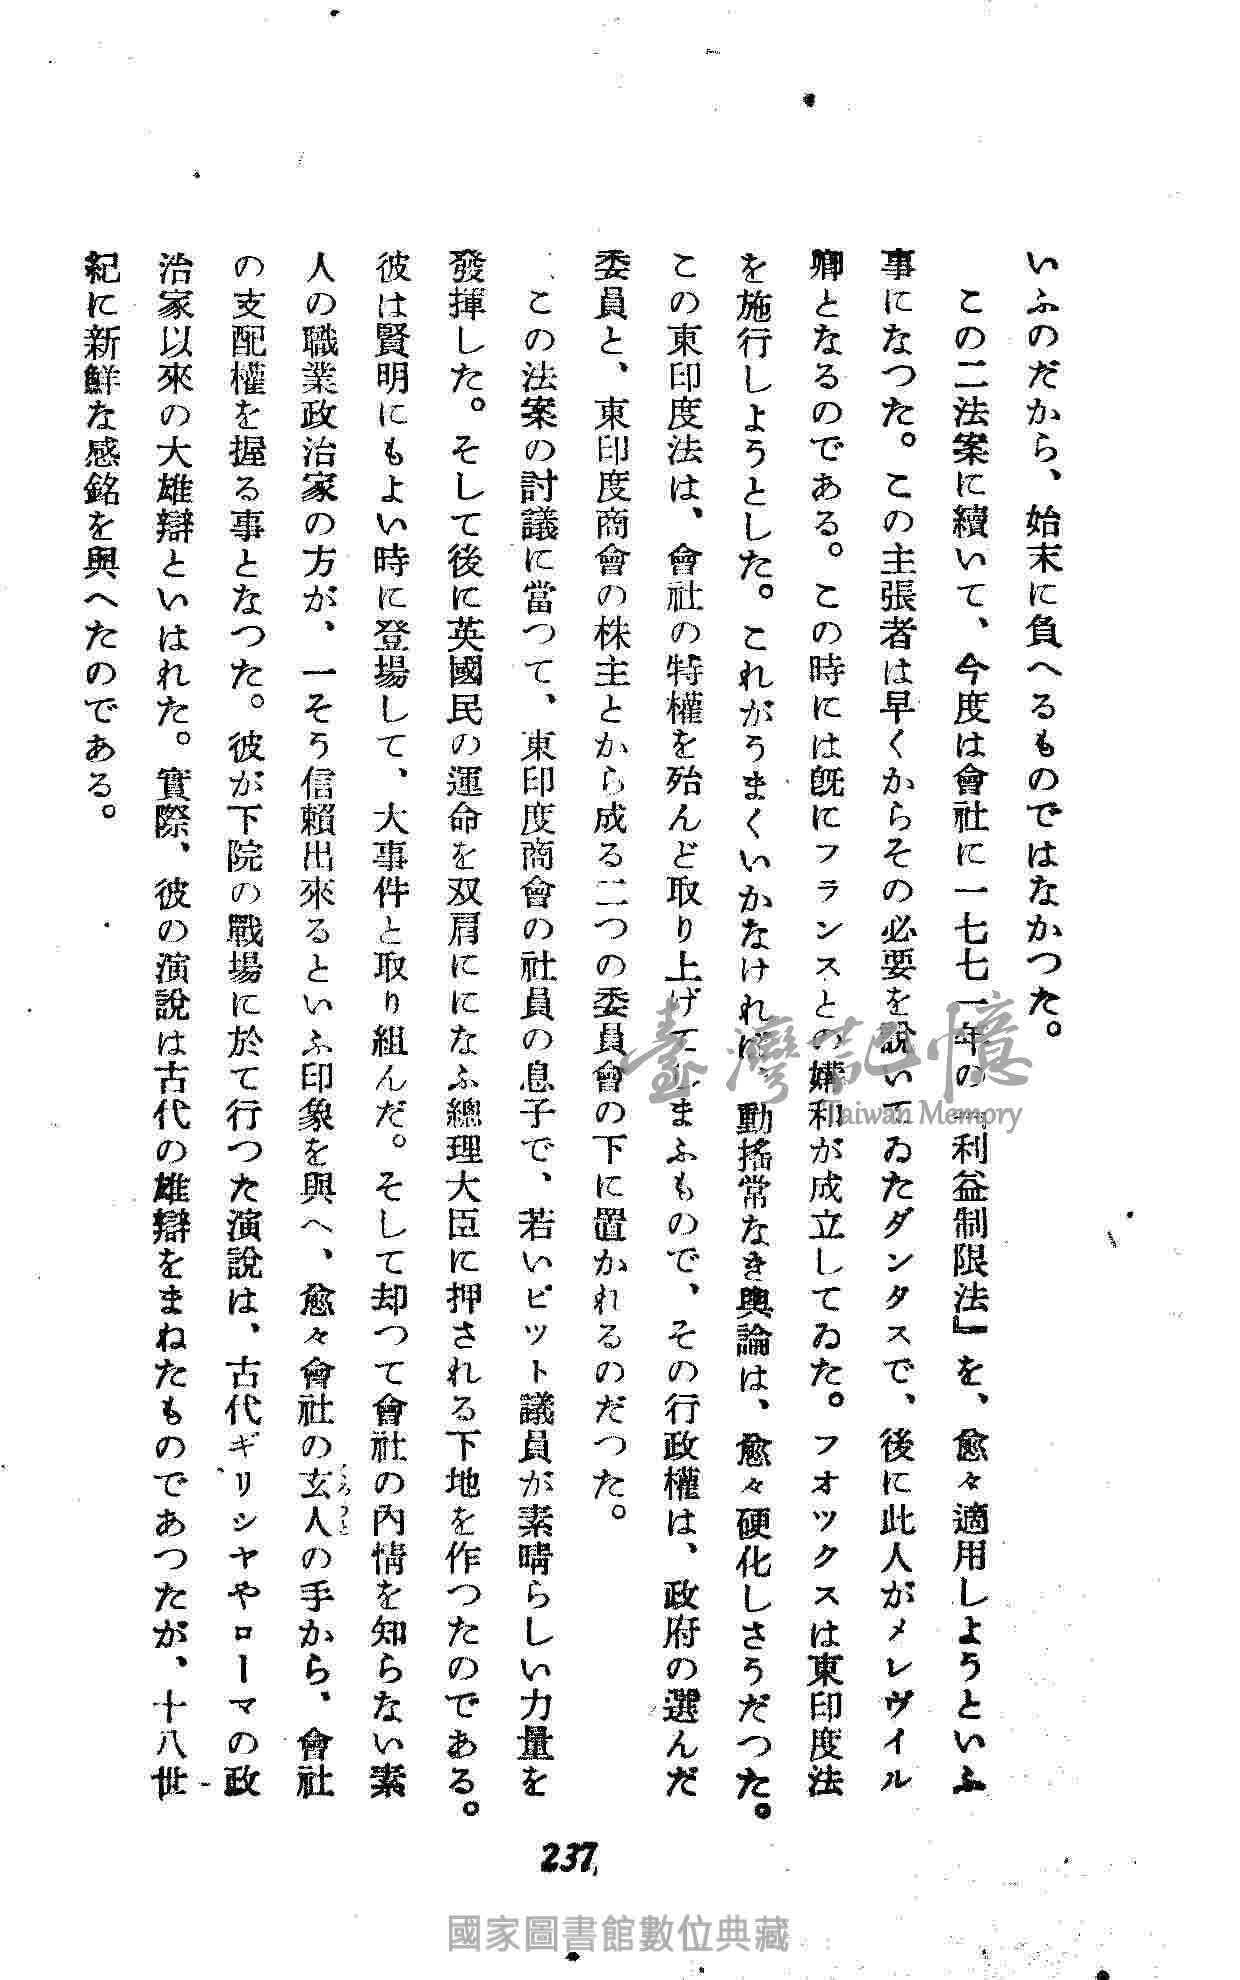 いふのだから、始末に負へるものではなかつた。
この二法案に續いて、今度は會社に一七七一年の『利益制限法』を、愈々適用しようといふ
事になつた。この主張者は早くからその必要を說いてゐたダンタスで、後に此人がメレヴイル
卿となるのである。この時には旣にフランスとの媾和が成立してゐた。フオツクスは東印度法
を施行しようとした。これがうまくいかなければ、動搖常なき輿論は、愈々硬化しさうだつた。
この東印度法は、會社の特權を殆んど取り上げてしまふもので、その行政權は、政府の選んだ
委員と、東印度商會の株主とから成る二つの委員會の下に置かれるのだつた。
この法案の討議に當つて、東印度商會の社員の息子で、若いピット議員が素晴らしい力量を
發揮した。そして後に英國民の運命を双肩にになふ總理大臣に押される下地を作つたのである。
彼は賢明にもよい時に登場して、大事件と取り組んだ。そして却つて會社の內情を知らない素
人の職業政治家の方が、一そう信賴出來るといふ印象を與へ、愈々會社の玄人の手から、會社
の支配權を握る事となつた。彼が下院の戰場に於て行つた演說は、古代ギリシヤやローマの政
治家以來の大雄辯といはれた。實際、彼の演說は古代の雄辯をまねたものであつたが、十八世
紀に新鮮な感銘を與へたのである。
237
臺灣記憶
Taiwan Memory
國家圖書館數位典藏